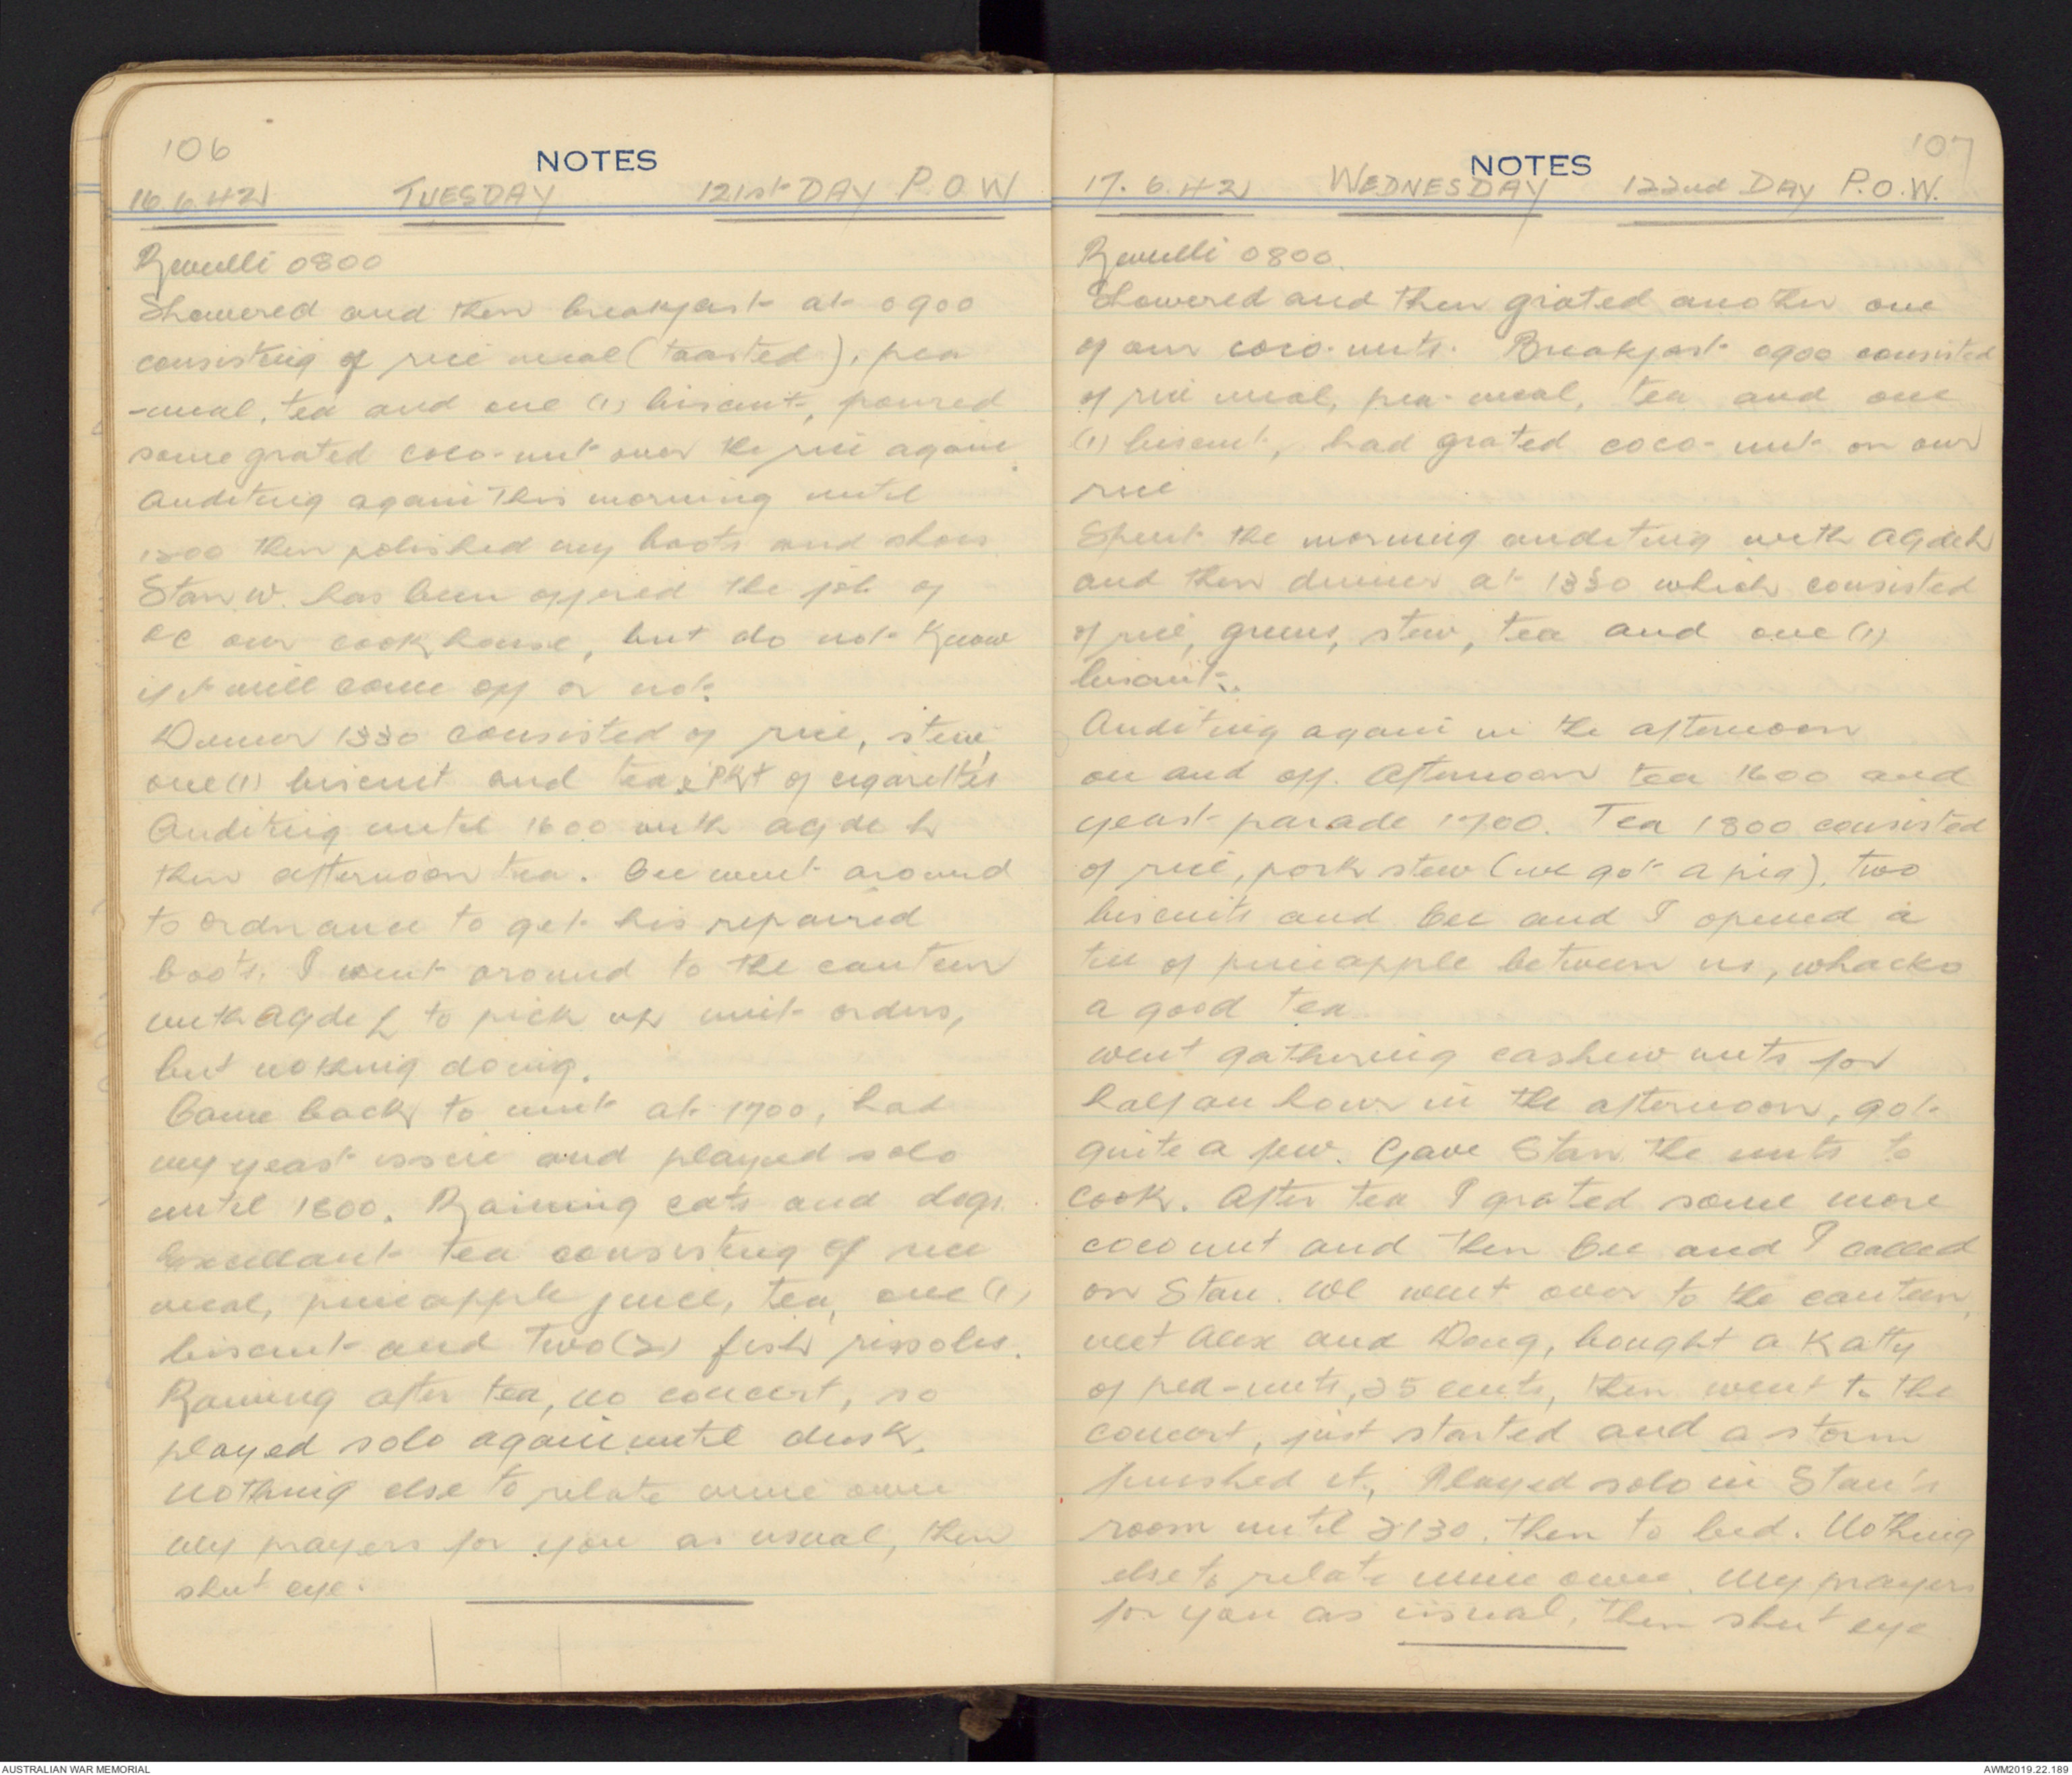 106
NOTES
16.6.42 TUESDAY 121st DAY P.O.W
Revielli 0800
Showered and then breakfast at 0900
consisting of rice meal (toasted), pea
-meal, tea and one (1) biscuit, poured
some grated coco-nut over the rice again.
Auditing again this morning until
1300 then polished my boots and shoes
Stan W. has been offered the job of
OC our cookhouse, but do not know
if it will come off or not.
Dinner 1330 consisted of rice, stew,
one (1) biscuit and tea, pkt of cigarettes
Auditing until 1600 with
then afternoon tea. went around
to ordnance to get his repaired
boots. I went around to the canteen
with to pick up unit orders,
but nothing doing.
Came back to unit at 1700, had
my yeast issue and played solo
until 1800. Raining cats and dogs.
Excellant tea consisting of rice
meal, pineapple juice, tea, one (1)
biscuit and two (2) fish rissoles.
Raining after tea, no concert, so
played solo again until dusk.
Nothing else to relate mine own
My prayers for you as usual, then
shut eye.
107
NOTES
17.6.42 WEDNESDAY 122nd DAY P.O.W.
Revielli 0800.
Showered and then grated another one
of our coco-nuts. Breakfast 0900 consisted
of rice meal, pea-meal, tea and one
(1) biscuit, had grated coco-nut on our
rice
Spent the morning auditing with
and then dinner at 1330 which consisted
of rice, greens, stew, tea and one (1)
biscuit.
Auditing again in the afternoon
on and off. Afternoon tea 1600 and
yeast parade 1700. Tea 1800 consisted
of rice, pork stew (we got a pig), two
biscuits and and I opened a
tin of pineapple between us, whacko
a good tea.
went gathering cashew nuts for
half an hour in the afternoon, got
quite a few. Gave Stan the nuts to
cook. After tea I grated some more
coconut and then and I called
on Stan. We went over to the canteen,
met Alex and Doug, bought a Katty
of pea-nuts, 25 cents, then went to the
concert, just started and a storm
finished it. Played solo in Stan's
room until 2130, then to bed. Nothing
else to relate mine own. My prayers
for you as usual, then shut eye
AUSTRALIAN WAR MEMORIAL
AWM2019.22.189